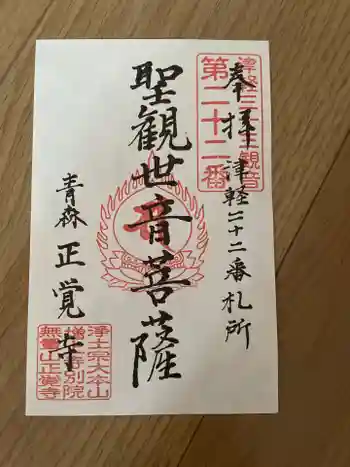 奉拝 津軽二十二番札所
津軽三十三観音
第二十二番
聖観世音菩薩
青森 正覚寺
浄土宗大本山
増上寺別院
無量山正覚寺